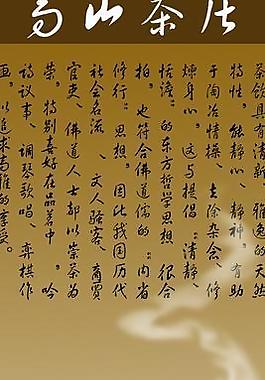 高山茶法
茶饮具有清新、雅逸的天然
特性，能静心、静神，有助
于陶冶情操、去除杂念、修
炼身心，这与提倡“清静、
恬澹”的东方哲学思想很合
拍，也符合佛道儒的“内省
修行”思想，因此我国历代
社会名流、文人骚客、商贾
官吏、佛道人士都以崇茶为
荣，特别喜好在品茗中，吟
诗议事、调琴歌唱、弈棋作
画，以追求高雅的享受。